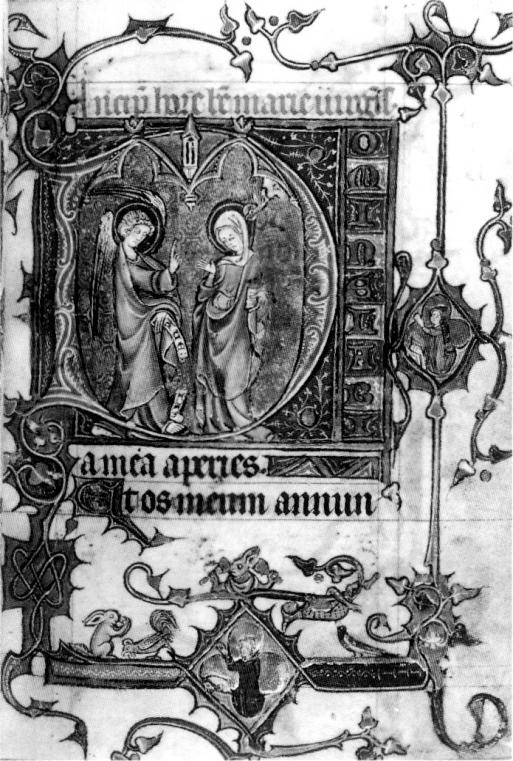 Incip̄ hore bt̄e marie uirḡis.
D
O
M
I
N
E
L
A
B
I
a mea aperies.
Et os meum annun